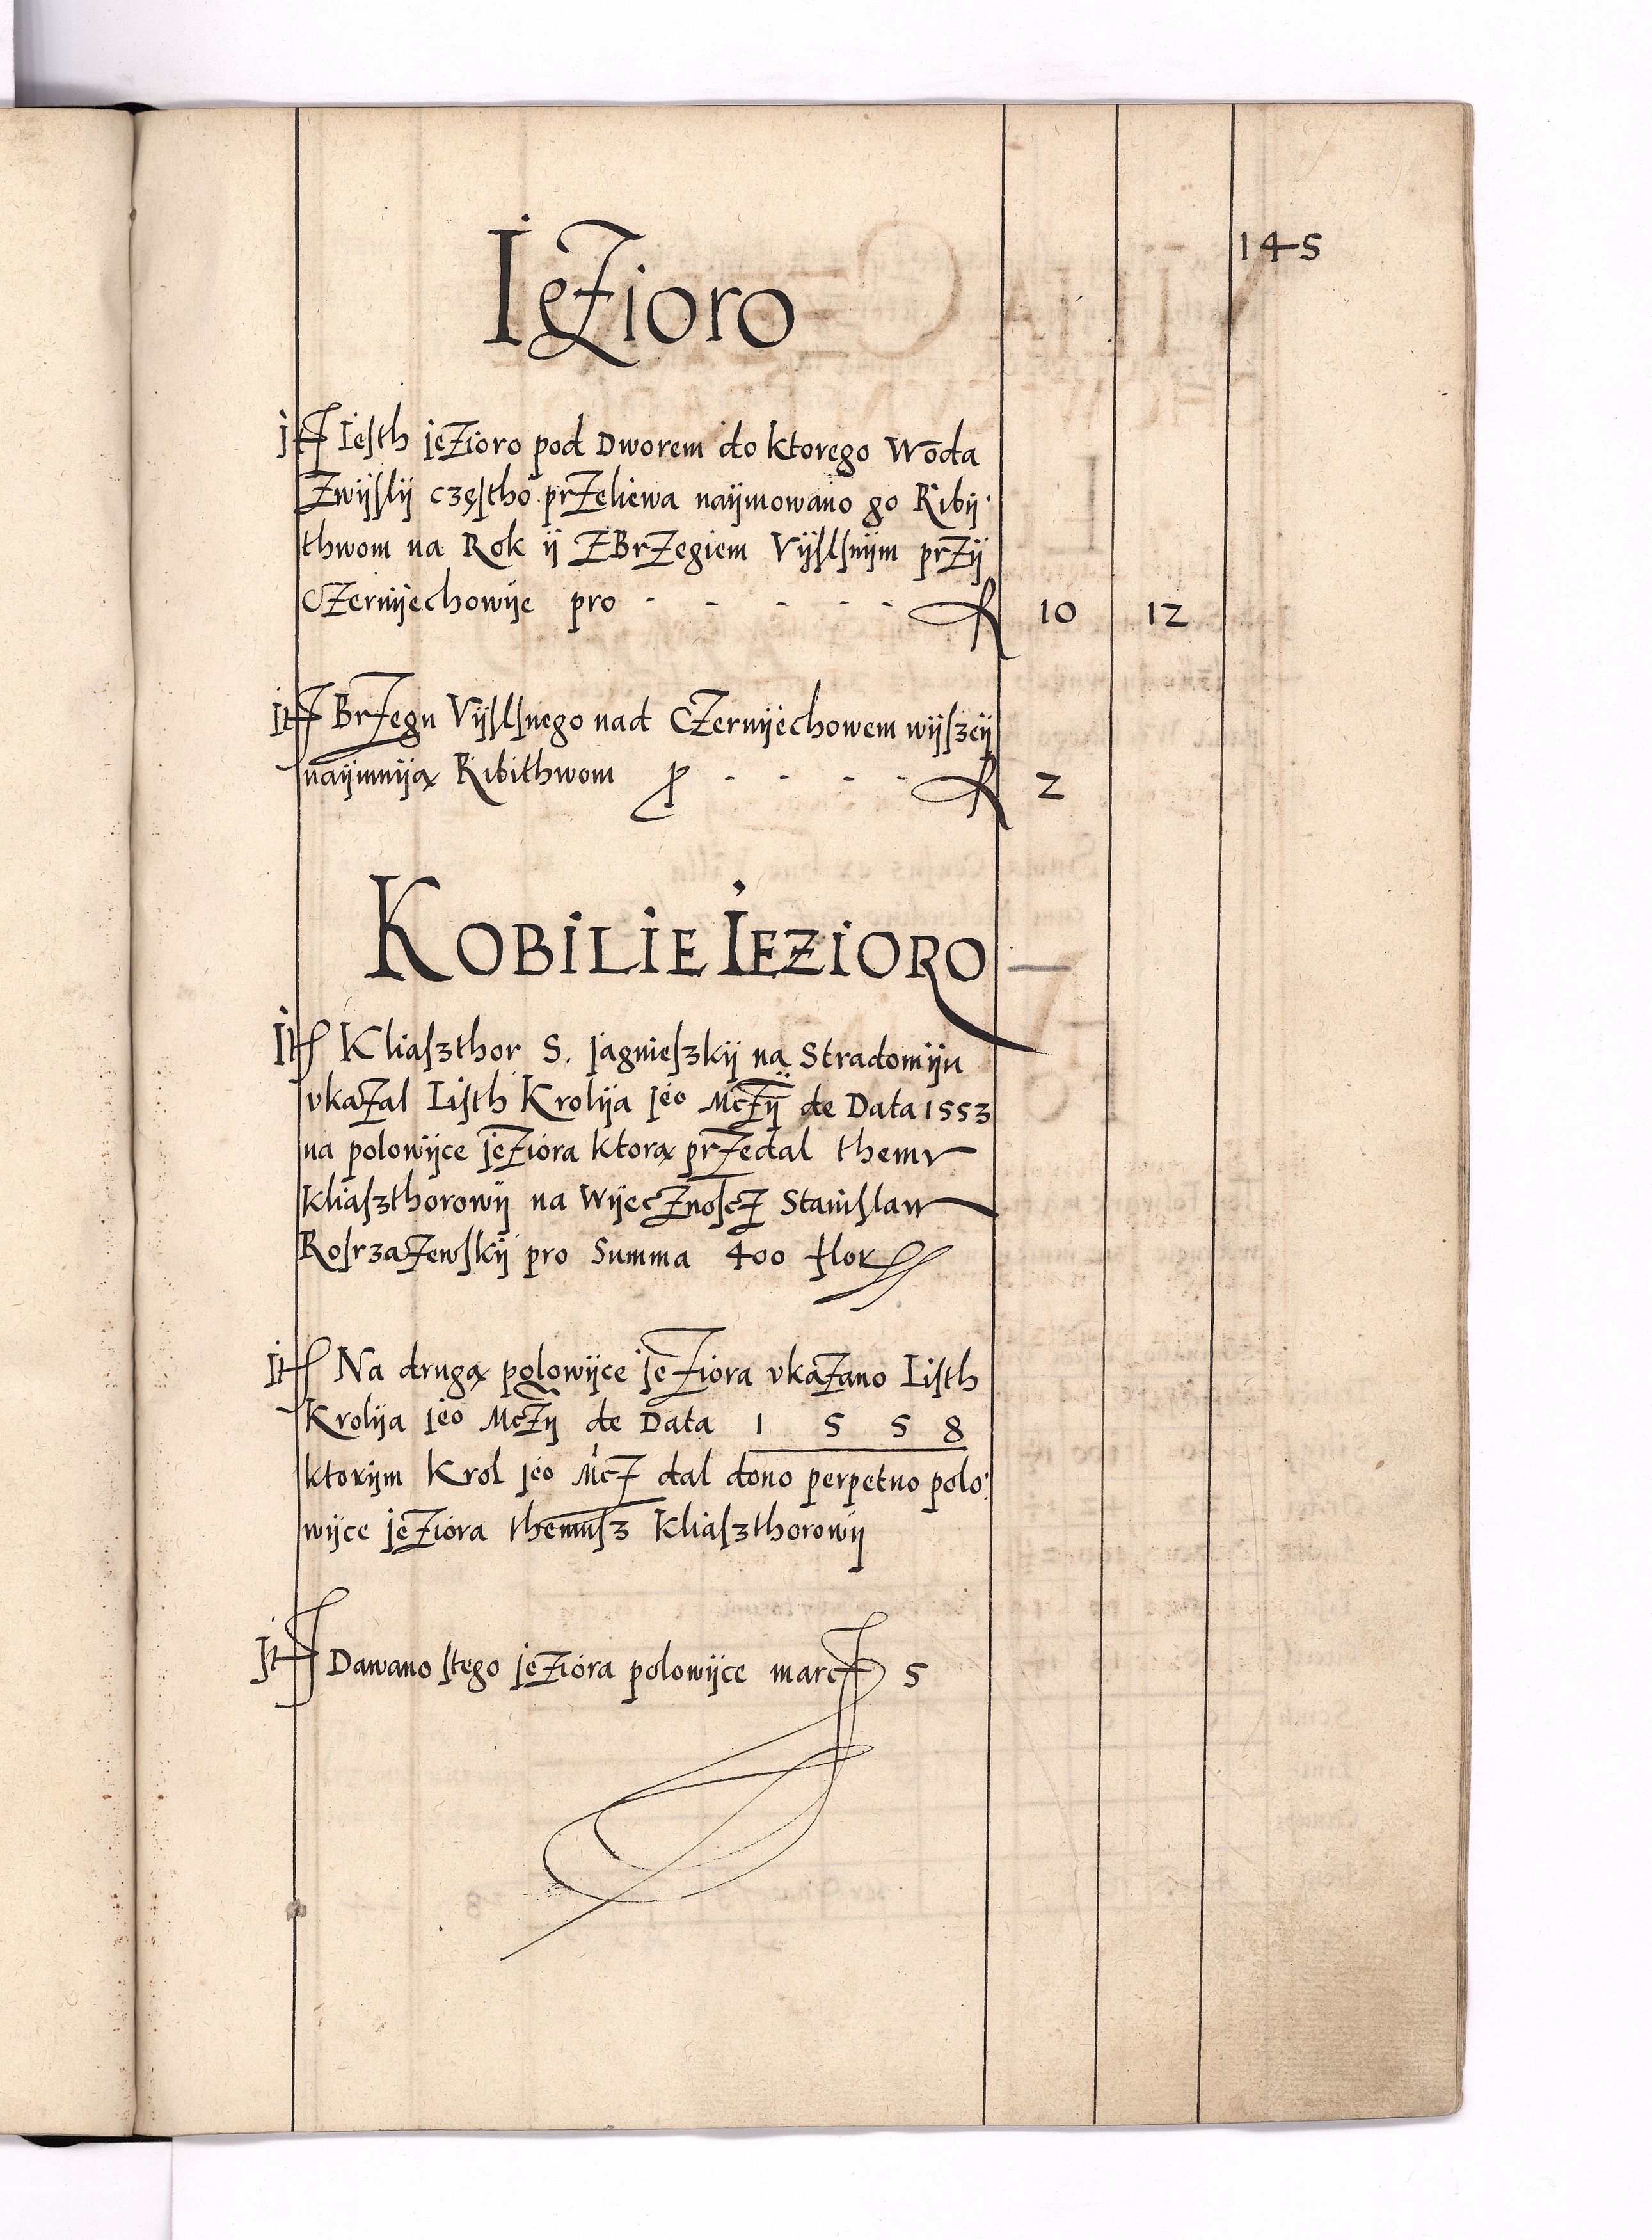 145
IęZioro
It Iesth jeZioro pod Dworem do ktorego Woda
Zwijslij częstho prZeliewa naijmowano go Ribij
thwom na Rok ij ZBrZegiem Vijslsnijm prZij
CZernijechowije pro - - - - - 10 12
It BrZegu Vijslsnego nad CZernijechowem wijszeij
naijmnija̧ Ribithwom p - - - - 2
KOBILIE IEZIORO
It Kliaszthor S. Jagnieszkij na̧ Stradomiju
vkaZal Listh Krolija jeo McZij de Data 1553
na polowijce jeZiora ktora̧ prZedal themv
kliaszthorowij na WijecZnoscZ Stanislaw
RosrzaZewskij pro Summa 400 flor
It Na druga̧ polowijce jeZiora vkaZano Listh
Krolija jeo McZij de Data 1558
ktorijm Krol jeo McZ dal dono perpetuo polo:
wijce jeZiora themusz kliaszthorowij
It Dawano stego jeZiora polowijce marc 5